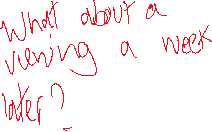 What about a
viewing a week
later?